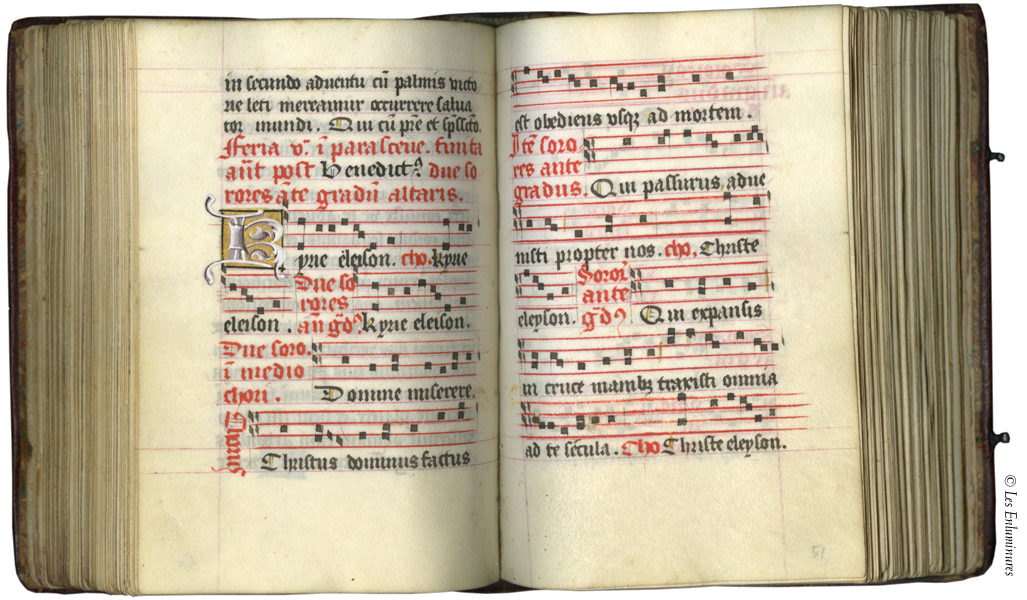 in secundo aduentu cū palmis victo
rie leti mereamur occurrere salua
tori mundi. Qui cū pr̄e et sp̄sct̄o.
Feria v. ī parasceue. finita
an̄t post Benedict⁹ due so
rores āte gradū altaris.
Kyrie eleison. cho. kyrie
Due so
rores
eleison. an̄ gd̄⁹ kyrie eleison.
Due soro.
ī medio
chori. Domine miserere.
Chorus
Christus dominus factus
est obediens vsqz ad mortem.
Itē soro
res ante
gradus. Qui passurus adue
nisti propter nos. cho. Christe
Soror
ante
eleyson. gd̄⁹ Qui expansis
in cruce manibz traxisti omnia
ad te secula. Cho Christe eleyson.
51
© Les Enluminures